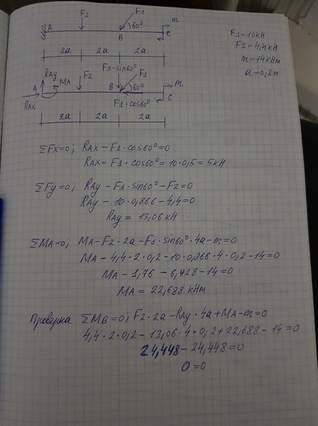 F2 F1 60° m
A B C
2a 2a 2a
F1 = 10кН
F2 = 4,4кН
m = 14кНм
a = 0,2м
F1·sin60° F1
RAy MA F2 60° m
A B C
RAx F1·cos60°
2a 2a 2a
ΣFx=0; RAx - F1·cos60°=0
RAx = F1·cos60° = 10·0,5 = 5кН
ΣFy=0; RAy - F1·sin60° - F2=0
RAy - 10·0,866 - 4,4=0
RAy = 13,06 кН
ΣMA=0; MA - F2·2a - F1·sin60°·4a - m=0
MA - 4,4·2·0,2 - 10·0,866·4·0,2 - 14=0
MA - 1,76 - 6,928 - 14=0
MA = 22,688 кНм
Проверка ΣMB=0; F2·2a - RAy·4a + MA - m=0
4,4·2·0,2 - 13,06·4·0,2 + 22,688 - 14=0
24,448 - 24,448=0
0=0